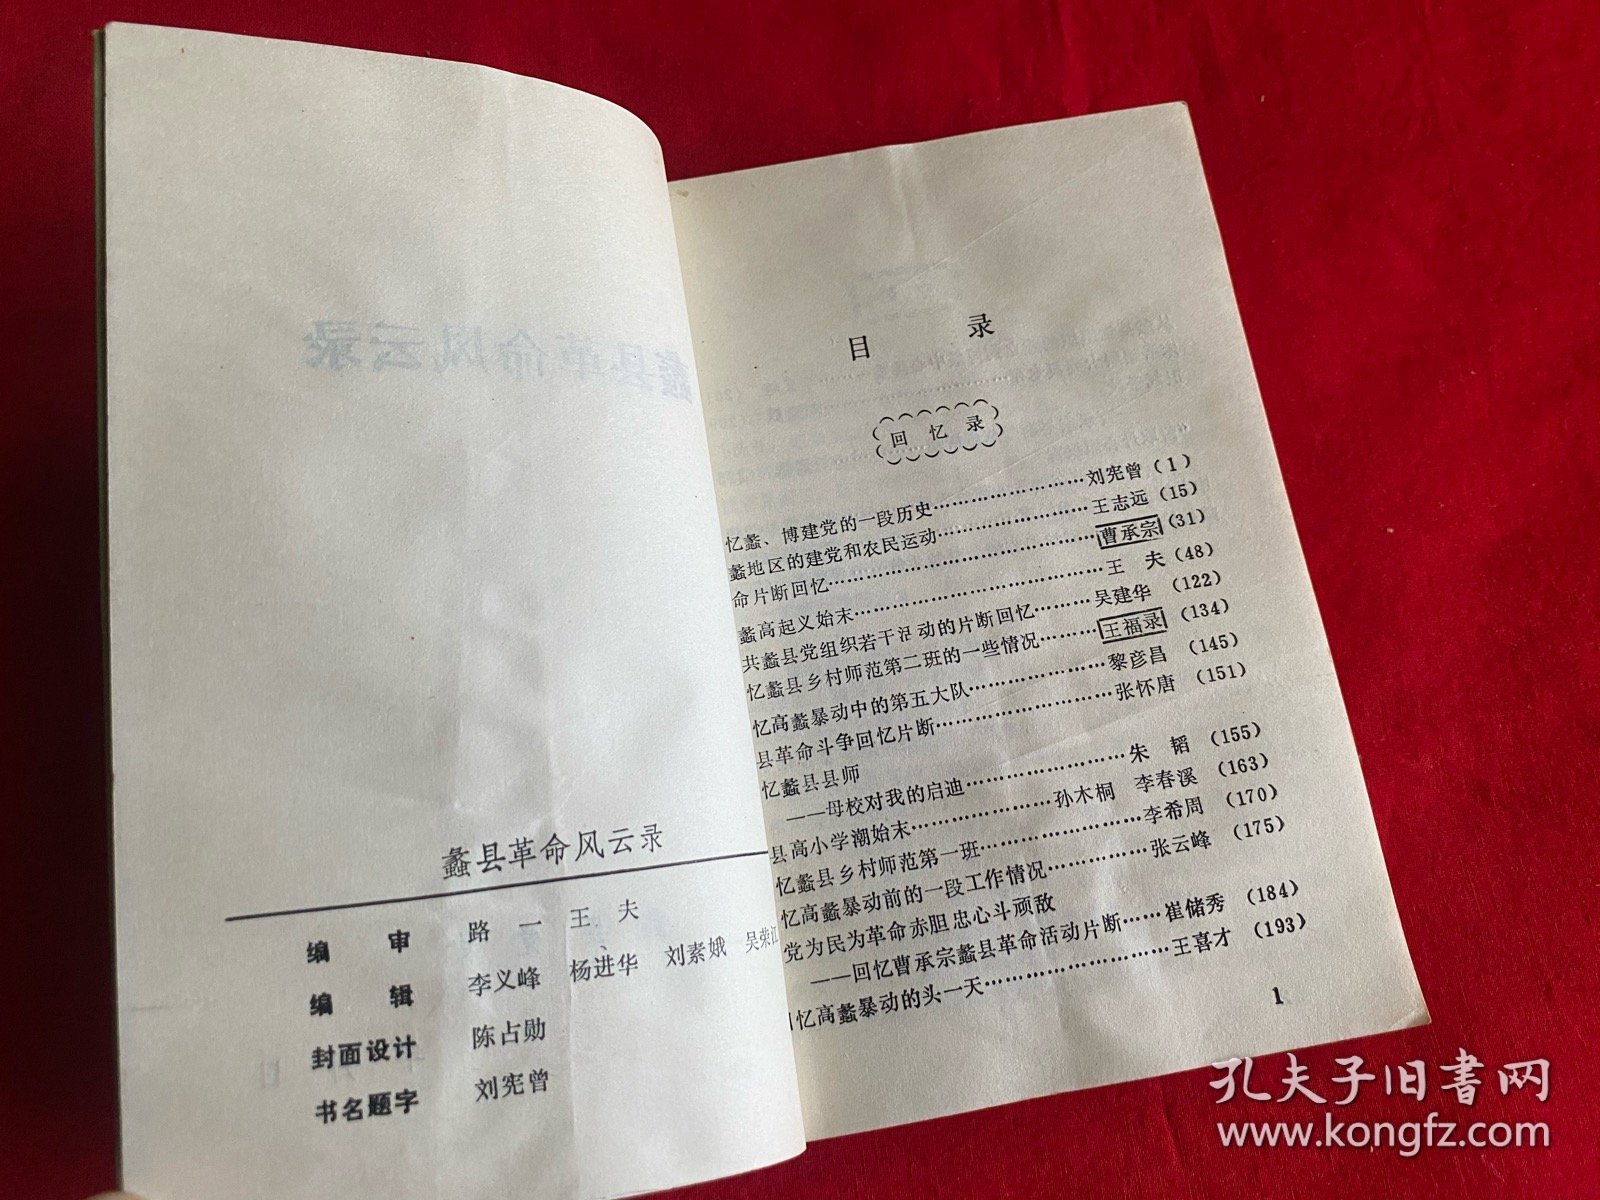 蠡县革命风云录
蠡县革命风云录
编 审 路 一 王 夫
编 辑 李义峰 杨进华 刘素娥 吴荣江
封面设计 陈占勋
书名题字 刘宪曾
目 录
回忆录
忆蠡、博建党的一段历史……………………刘宪曾(1)
蠡地区的建党和农民运动……………………王志远(15)
命片断回忆……………………………………曹承宗(31)
蠡高起义始末…………………………………王 夫(48)
共蠡县党组织若干活动的片断回忆………吴建华(122)
忆蠡县乡村师范第二班的一些情况………王福录(134)
忆高蠡暴动中的第五大队…………………黎彦昌(145)
县革命斗争回忆片断………………………张怀唐(151)
忆蠡县县师
——母校对我的启迪………………………朱 韬(155)
县高小学潮始末……………………孙木桐 李春溪(163)
忆蠡县乡村师范第一班……………………李希周(170)
忆高蠡暴动前的一段工作情况……………张云峰(175)
党为民为革命赤胆忠心斗顽敌
——回忆曹承宗蠡县革命活动片断……崔储秀(184)
忆高蠡暴动的头一天………………………王喜才(193)
1
孔夫子旧书网
www.kongfz.com